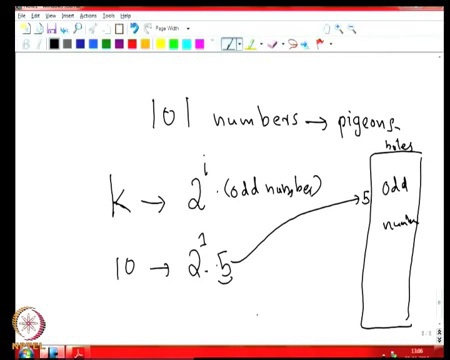 File Edit View Insert Actions Tools Help
Page Width
101 numbers → pigeons
holes
K → 2^i · (odd number)
5 odd
number
10 → 2^1 · 5
13:06